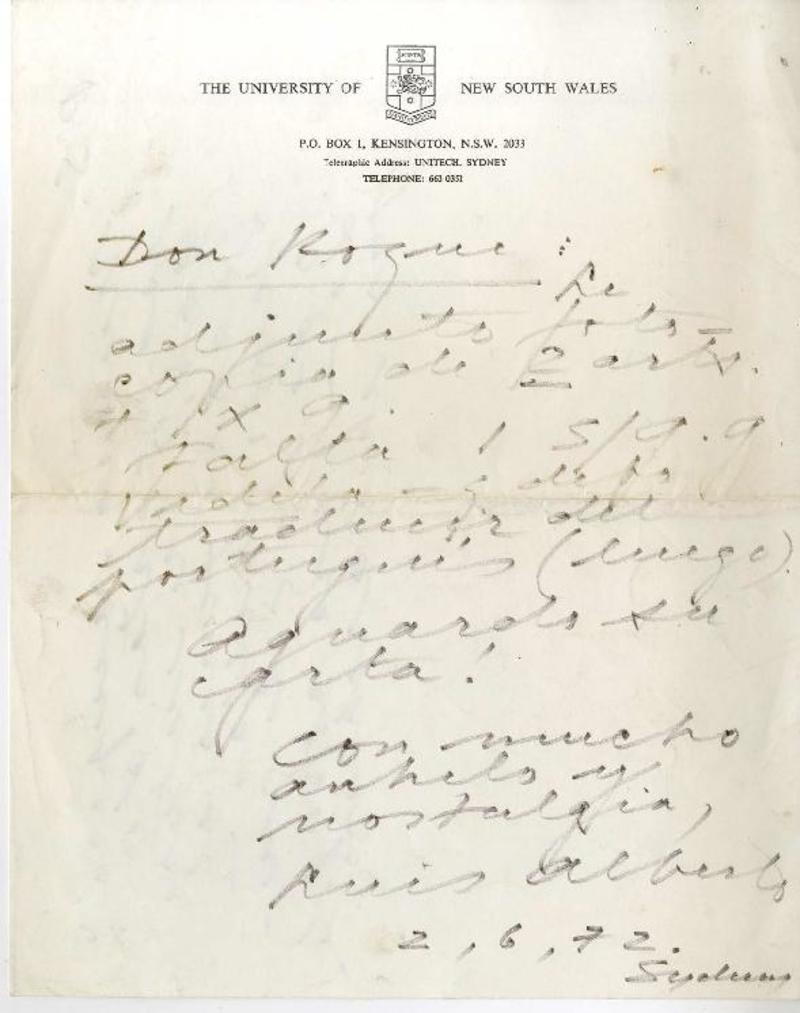 THE UNIVERSITY OF NEW SOUTH WALES
P.O. BOX 1, KENSINGTON, N.S.W. 2033
Telegraphic Address: UNITECH, SYDNEY
TELEPHONE: 663 0351
Don Roque :
Le
adjunto foto-
copia de 2 arts.
falta 1
traducir del
portugués (luego).
Aguardo su
carta!
con mucho
anhelo y
nostalgia,
Luis Alberto
2, 6, 72.
Sydney